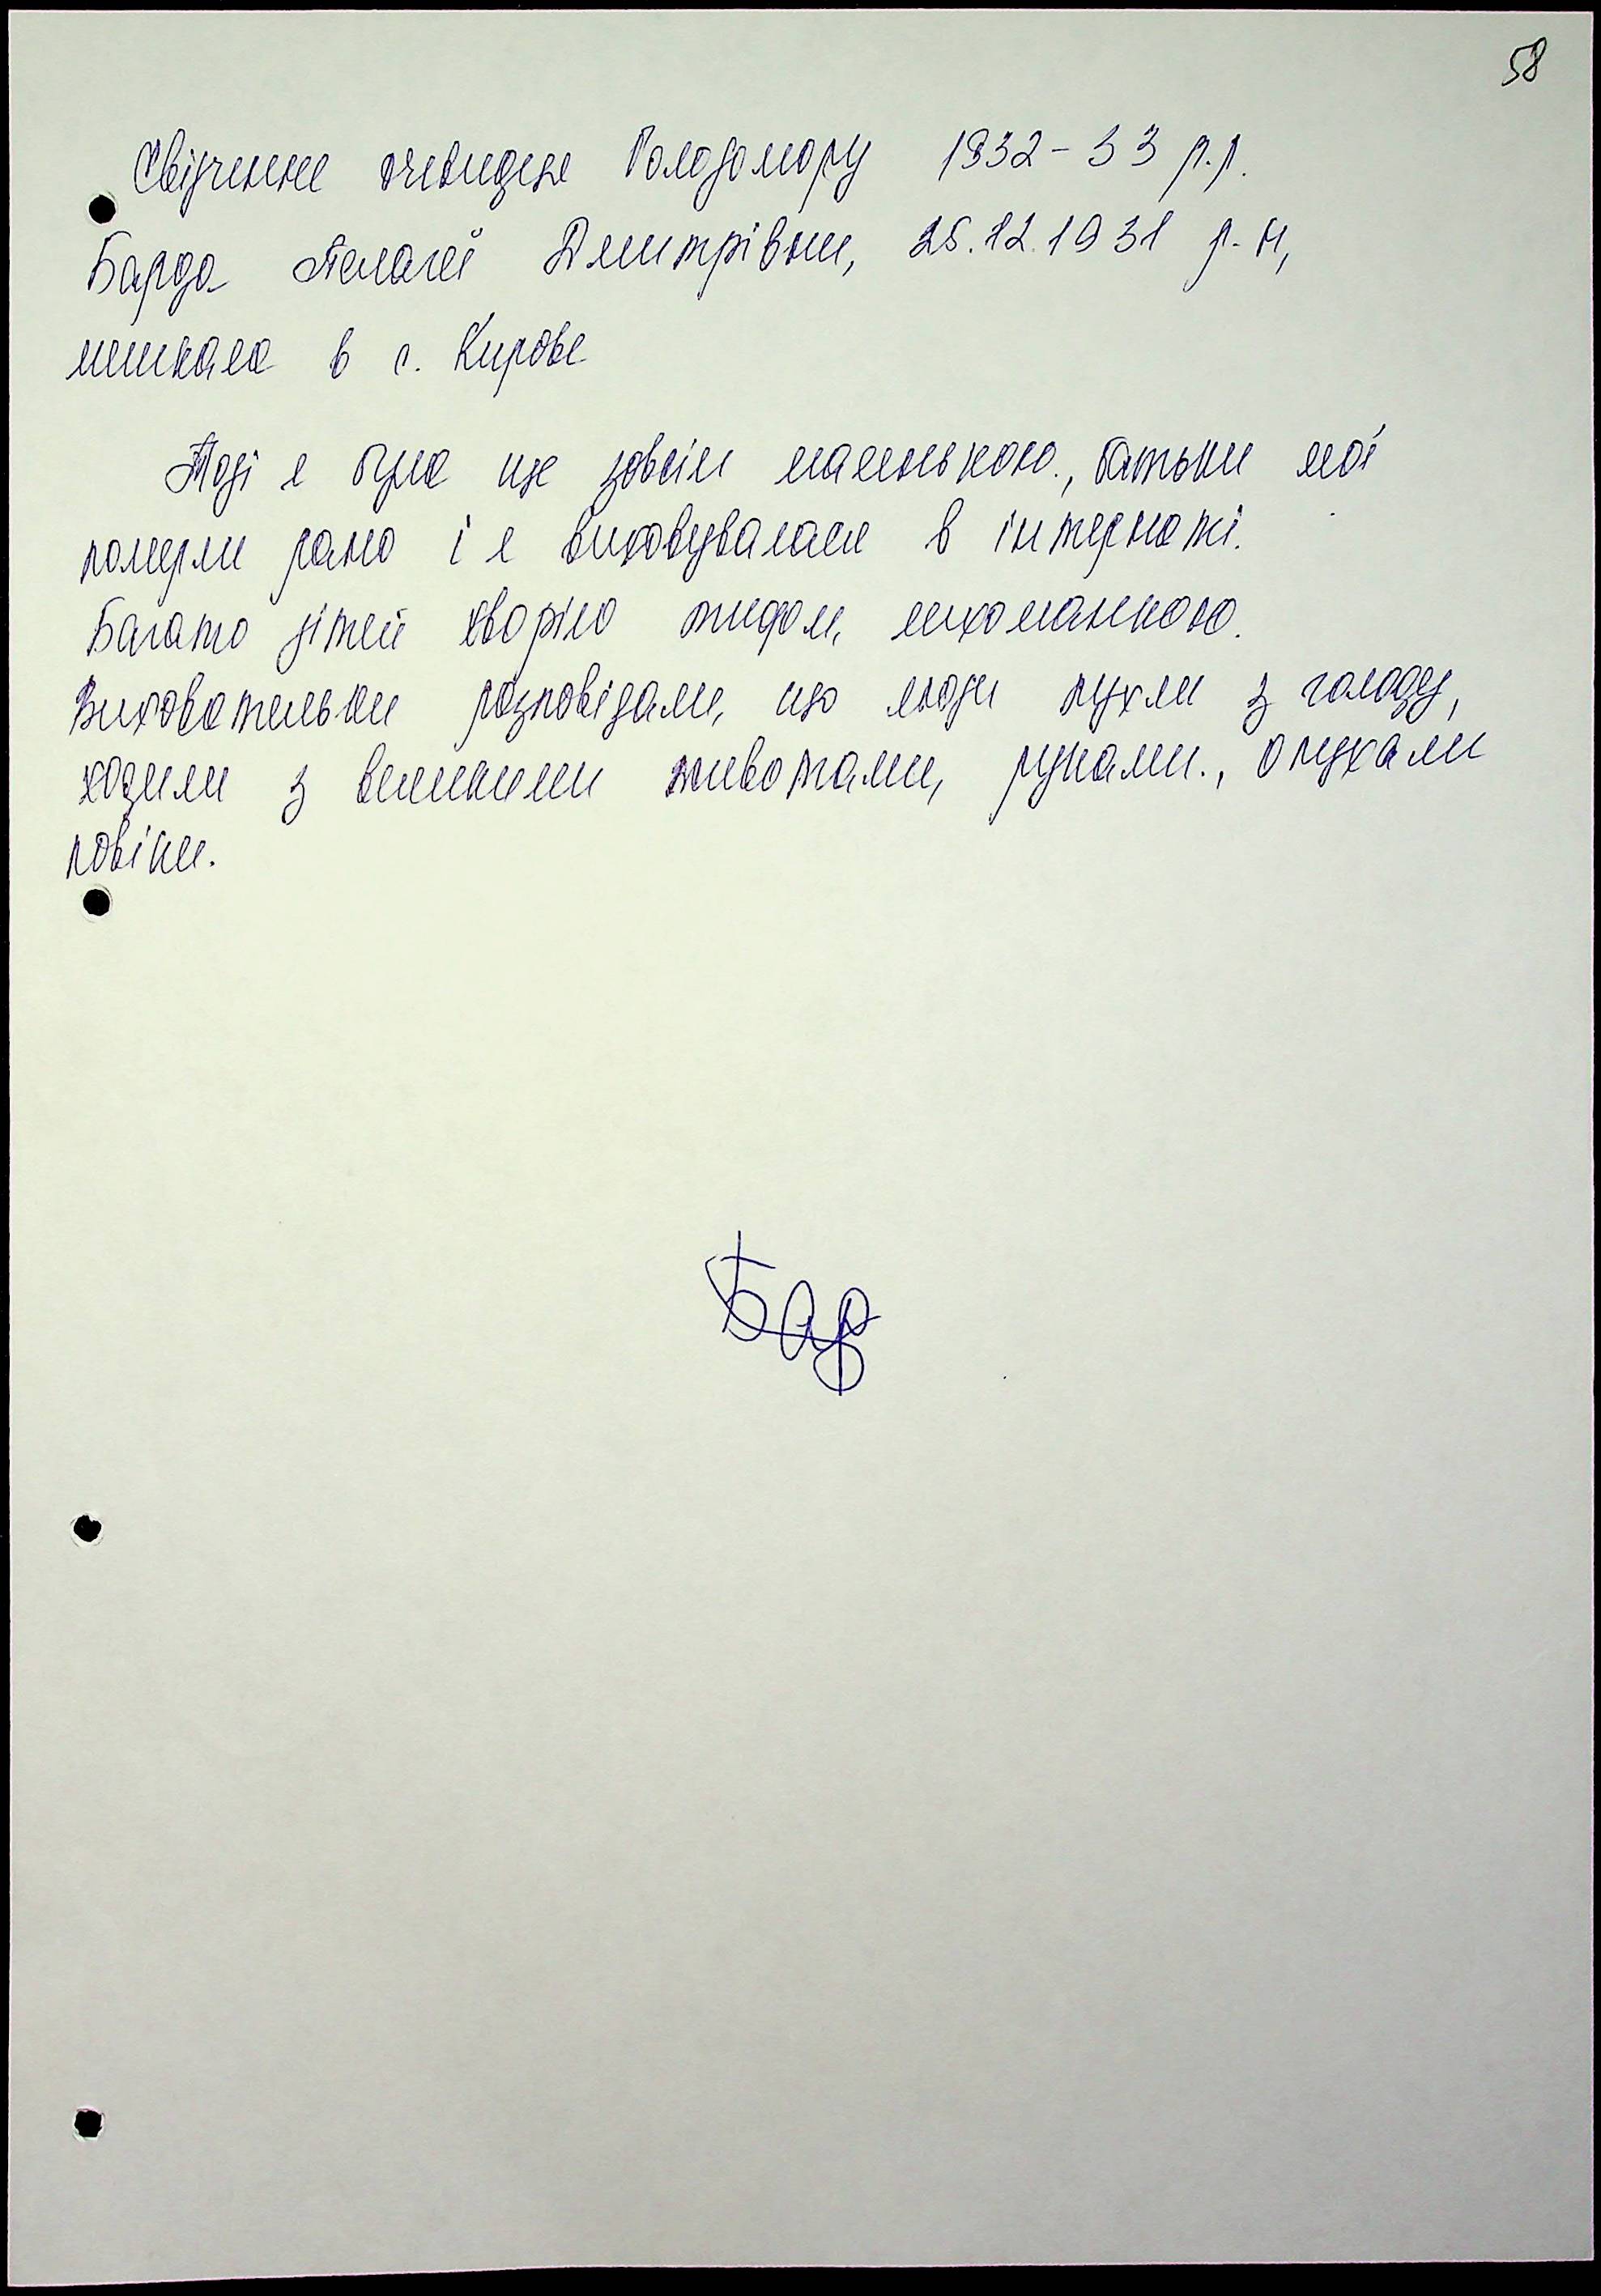 58
Свідчення очевидця Голодомору 1932-33 р.р.
Барда Пелагеї Дмитрівни, 25.12.1931 р-н,
мешкала в с. Кирове
Тоді я була ще зовсім маленькою., батьки мої
померли рано і я виховувалася в інтернаті.
Багато дітей хворіло тифом, лихоманкою.
Виховательки розповідали, що люди пухли з голоду,
ходили з великими животами, руками., опухали
повіки.
Бар